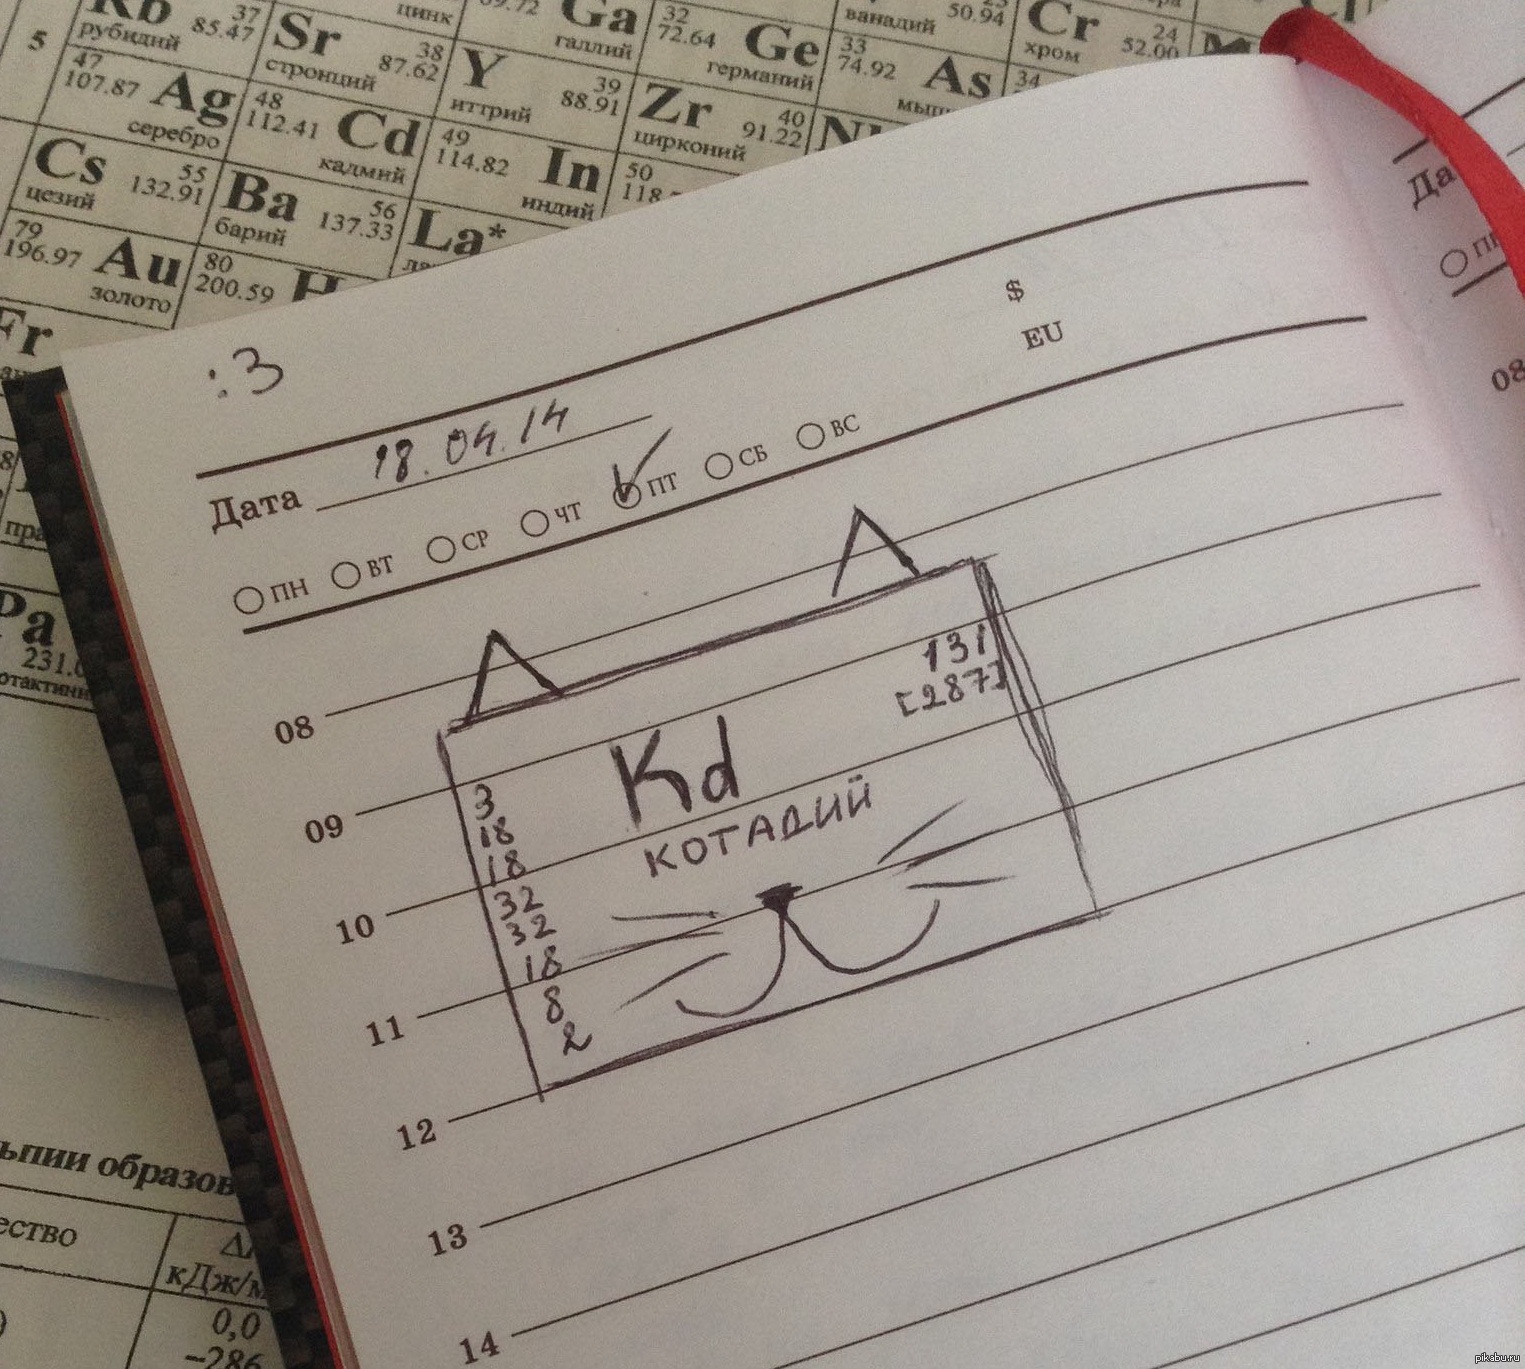 37
Rb 85.47
рубидий
38
Sr 87.62
стронций
цинк
39
Y 88.91
иттрий
69.72 Ga
галлий
40
Zr 91.22
цирконий
32
72.64 Ge
германий
ванадий
50.94
33
74.92 As
24
Cr 52.00
хром
34
5
47
107.87 Ag
серебро
48
112.41 Cd
кадмий
49
114.82 In
индий
50
55
Cs 132.91
цезий
56
Ba 137.33
барий
La*
79
196.97 Au
золото
80
200.59
Fr
Pa
:3
$
EU
Дата 18.04.14
ПН ВТ СР ЧТ ПТ СБ ВС
08
09
10
11
12
13
14
131
[287]
Kd
КОТАДИЙ
3
18
18
32
32
18
8
2
08
кДж/м
0,0
−286
pikabu.ru